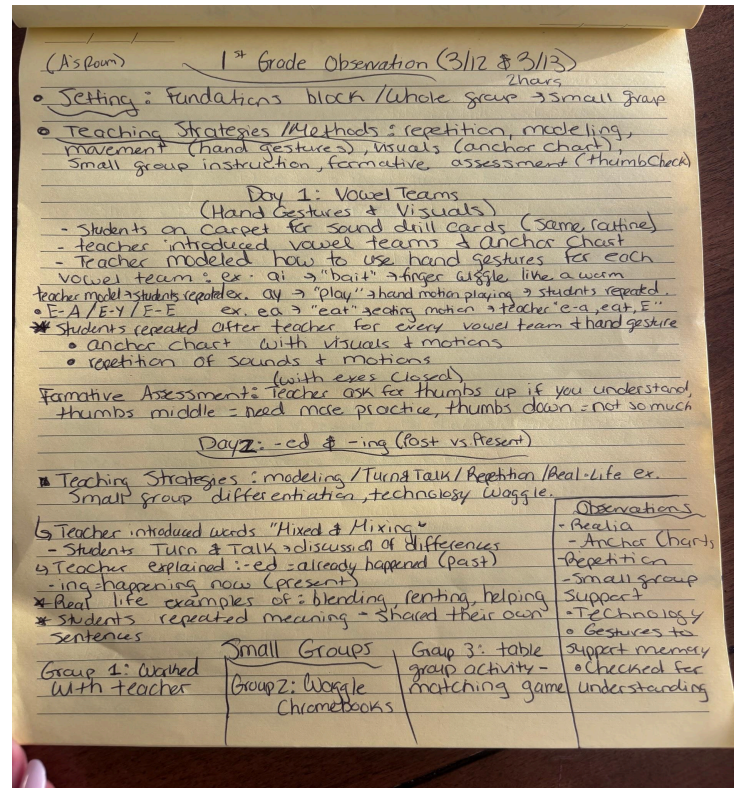 (A's Room) 1st Grade Observation (3/12 & 3/13)
2 hours
• Setting: Fundations block / Whole group → small group
• Teaching Strategies / Methods: repetition, modeling,
movement (hand gestures), visuals (anchor chart),
small group instruction, formative assessment (thumb check)
Day 1: Vowel Teams
(Hand Gestures & Visuals)
- Students on carpet for sound drill cards (same routine)
- teacher introduced vowel teams & anchor chart
- Teacher modeled how to use hand gestures for each
vowel team: ex. ai → "bait" → finger wiggle like a worm
teacher model → students repeated ex. ay → "play" → hand motion playing → students repeated.
• E-A / E-Y / E-E ex. ea → "eat" → eating motion → teacher "e-a, eat, E"
* Students repeated after teacher for every vowel team & hand gesture
• anchor chart with visuals & motions
• repetition of sounds & motions
(with eyes closed)
Formative Assessment: Teacher ask for thumbs up if you understand,
thumbs middle = need more practice, thumbs down = not so much
Day 2: -ed & -ing (Past vs. Present)
▪ Teaching Strategies: modeling / Turn & Talk / Repetition / Real-Life ex.
Small group differentiation, technology Waggle.
↳ Teacher introduced words "Mixed & Mixing"
- Students Turn & Talk → discussion of differences
↳ Teacher explained: -ed = already happened (past)
-ing = happening now (present)
* Real life examples of: blending, renting, helping
* Students repeated meaning - shared their own
sentences
Observations
- Realia
- Anchor Charts
- Repetition
- Small group
support
• Technology
• Gestures to
support memory
• Checked for
understanding
Small Groups
Group 1: Worked
with teacher
Group 2: Waggle
Chromebooks
Group 3: table
group activity -
matching game